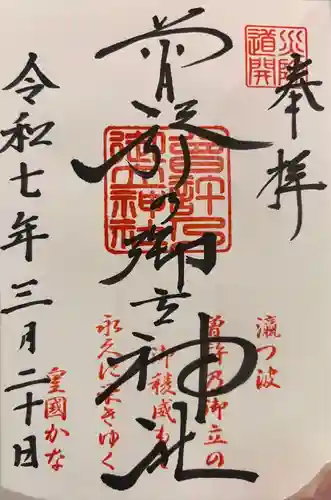 奉拝
災除
道開
曽許乃御立神社
曽許乃御立神社
瀛つ波
曽許乃御立の
御稜威も
永久に栄きゆく
皇國かな
令和七年三月二十日